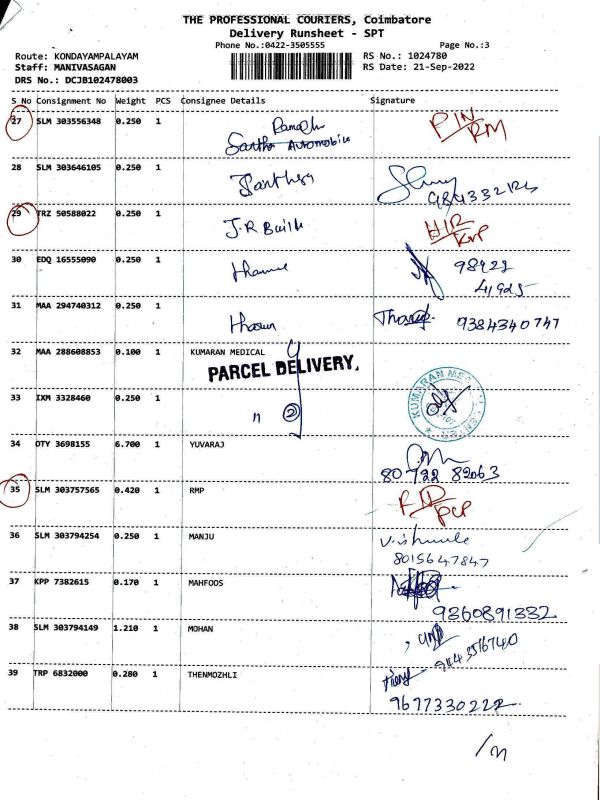 THE PROFESSIONAL COURIERS, Coimbatore
Delivery Runsheet - SPT
Phone No.:0422-3505555 Page No.:3
Route: KONDAYAMPALAYAM RS No.: 1024780
Staff: MANIVASAGAN RS Date: 21-Sep-2022
DRS No.: DCJB102478003
S No Consignment No Weight PCS Consignee Details Signature
27 SLM 303556348 0.250 1
Automobile
28 SLM 303646105 0.250 1
29 TRZ 50588022 0.250 1 J.R
30 EDQ 16555090 0.250 1
31 MAA 294740312 0.250 1 9384340747
32 MAA 288608853 0.100 1 KUMARAN MEDICAL
PARCEL DELIVERY.
33 IXM 3328460 0.250 1 2
34 OTY 3698155 6.700 1 YUVARAJ
80722 82063
35 SLM 303757565 0.420 1 RMP
36 SLM 303794254 0.250 1 MANJU
8015647847
37 KPP 7382615 0.170 1 MAHFOOS
9360891332
38 SLM 303794149 1.210 1 MOHAN
39 TRP 6832000 0.280 1 THENMOZHLI
9677330222